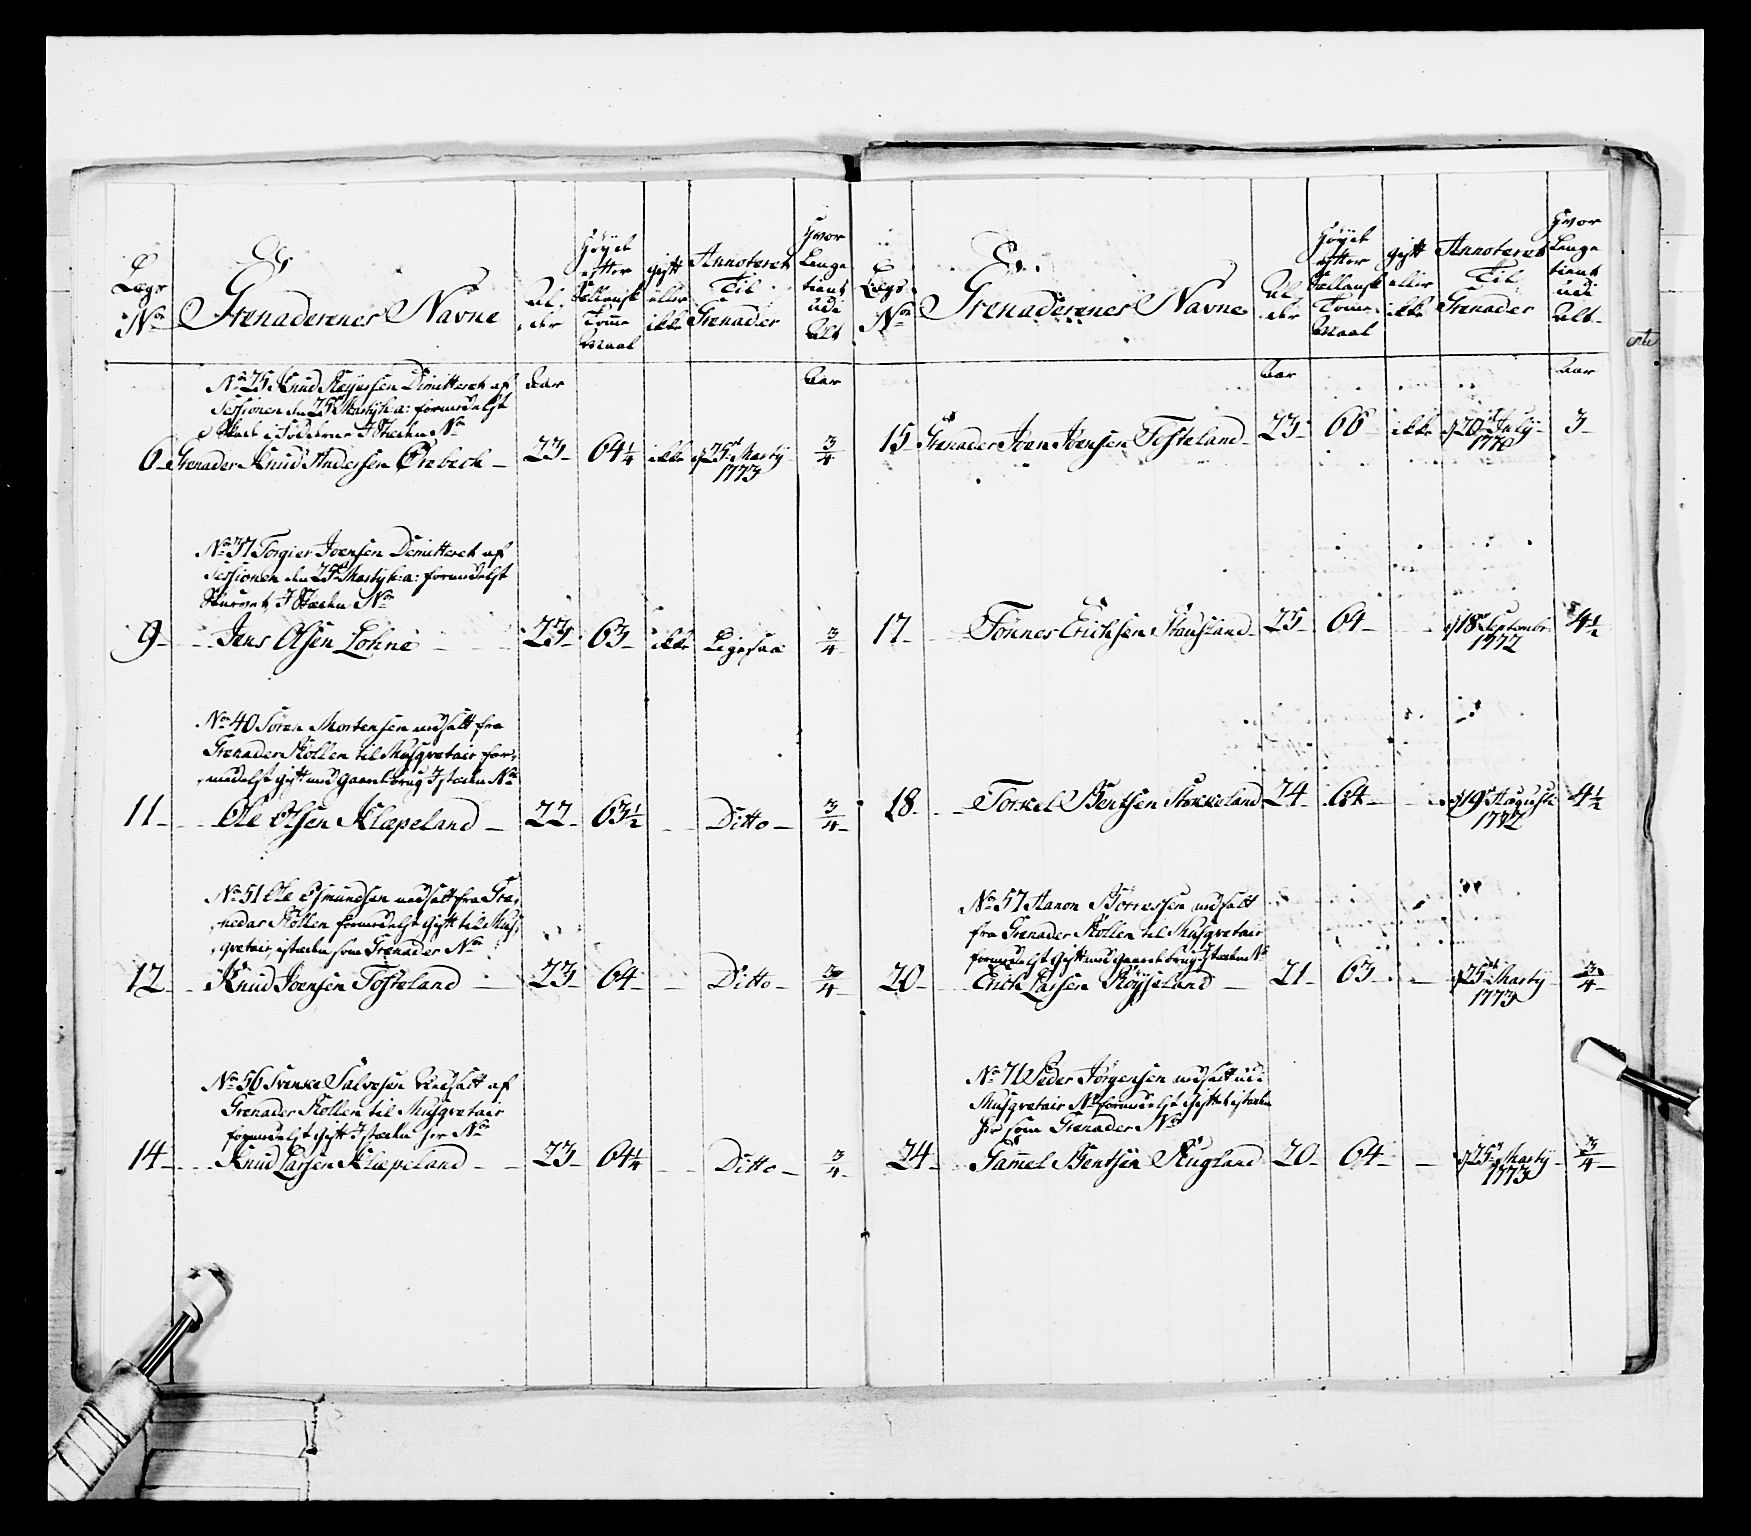 Lægs
No
Grenaderenes Navne
Al-
der
Høyet
efter
Sællansk
Tomme
Maal
gift
eller
ikke
Annoteret
Til
Grenader
Hvor
Lenge
tient
udi
Alt
Aar
Aar
No 25 Knud Dimitteret af
Sessionen den 25de Martij h: a: formedelst
I Stæden No
6 Grenader Knud Andersen Ørebech 23 64¼ ikke d 25de Martij 1773 ¾
No 37 Torgier Joensen Dimitteret af
Sessionen den 25de Martij h: a: formedelst
Skurvet, I Stæden No
9 Jens Olsen Lohne 23 63 ikke Ligesaa ¾
No 40 Søren Mortensen udsatt fra
Grenader Rollen til Musqvetair for-
medelst gift med gaardbrug I stæden No
11 Ole Olsen Klæpeland 22 63½ Ditto ¾
No 51 Ole Osmundsen udsatt fra Gre-
nedar Rollen formedelst Gift til Mus-
qvetair, istæden som Grenader No
12 Knud Joensen Tofteland 23 64 Ditto ¾
No 56 Svenke Salvesen Udsatt af
Grenader Rollen til Musqvetair
formedelst gift I stæden her No
14 Knud Larsen Klæpeland 23 64¼ Ditto ¾
Lægs
No
Grenaderenes Navne
Al-
der
Høyet
efter
Sællansk
Tomme
Maal
gift
eller
ikke
Annoteret
Til
Grenader
Hvor
Lenge
tient
udi
Alt
Aar
Aar
15 Grenader Joen Joensen Tofteland 23 66 ikke d 20de July 1770 3
17 Tønnes Erichsen Stausland 25 64 d 18de September 1772 4½
18 Torkel Bentsen Stokkeland 24 64 d 19de Augusti 1772 4½
No 57 Aanon Børresen udsatt
fra Grenader Rollen til Musqvetair
formedelst Gift med gaardbrug I Stæden No
20 Erich Larsen Røyseland 21 63 d 25de Martij 1773 ¾
No 71 Peder Jørgensen udsatt udi
Musqvetair No formedelst Gift istæden
her som Grenader No
24 Gammel Bentsen Rugland 20 64 d 25de Martij 1773 ¾